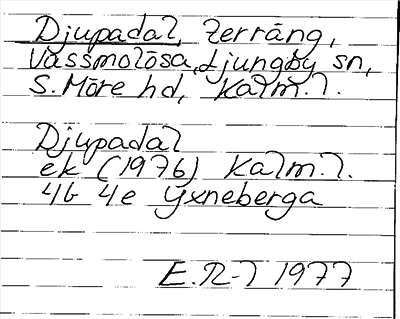 Djupadal, terräng,
Vassmolösa, Ljungby sn,
S. Möre hd, Kalm. l.
Djupadal
ek (1976) Kalm. l.
4G 4e Yxneberga
E. R-l 1977